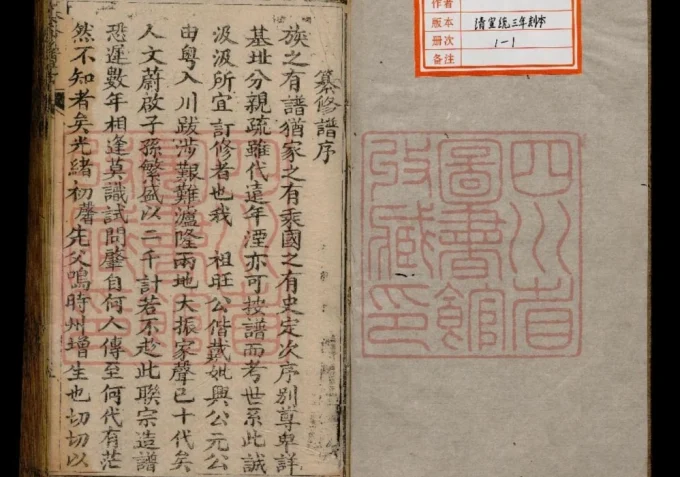 作者
版本 清宣統三年刻本
册次 1-1
备注
四川省
圖書館
收藏印
纂修譜序
族之有譜猶家之有乘國之有史定次序別尊卑詳
基址分親疏雖代遠年湮亦可按譜而考世系此誠
汲汲所宜訂修者也我 祖旺公偕戴妣與公元公
由粵入川跋涉艱難瀘隆兩地大振家聲已十代矣
人文蔚啟子孫繁盛以二千計若不趁此聯宗造譜
恐遲數年相逢莫識試問肇自何人傳至何代有茫
然不知者矣光緒初馨先父鳴時州增生也切切以